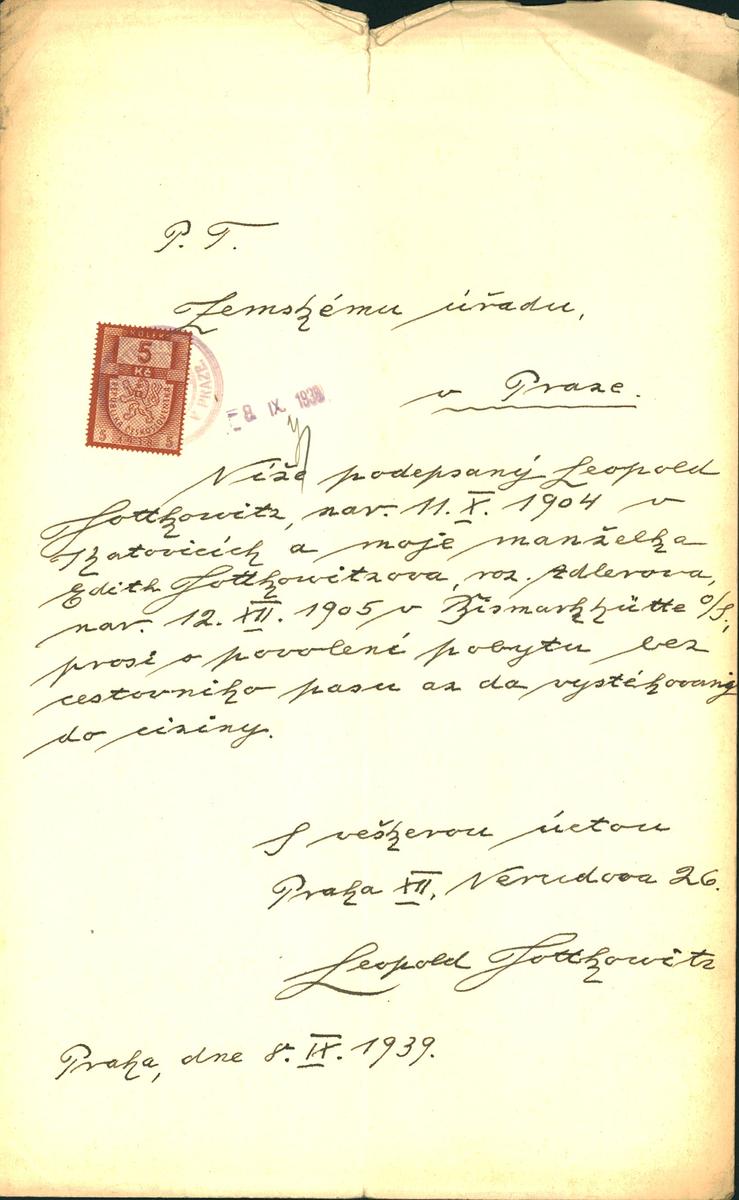 P. T.
Zemskému úřadu,
v Praze.
KOLEK
5
Kč
REPUBLIKA ČESKOSLOVENSKÁ
5 1938 5
V PRAZE.
8. IX. 1939
Níže podepsaný Leopold
Gottkowitz, nar. 11. X. 1904 v
Katovicích a moje manželka
Edith Gottkowitzova, roz. Adlerova,
nar. 12. XII. 1905 v Bismarkhütte O/S.,
prosi o povolení pobytu bez
cestovniho pasu az da vystěhovaný
do ciziny.
S veškerou úctou
Praha XII, Nerudova 26.
Leopold Gottkowitz
Praha, dne 8. IX. 1939.